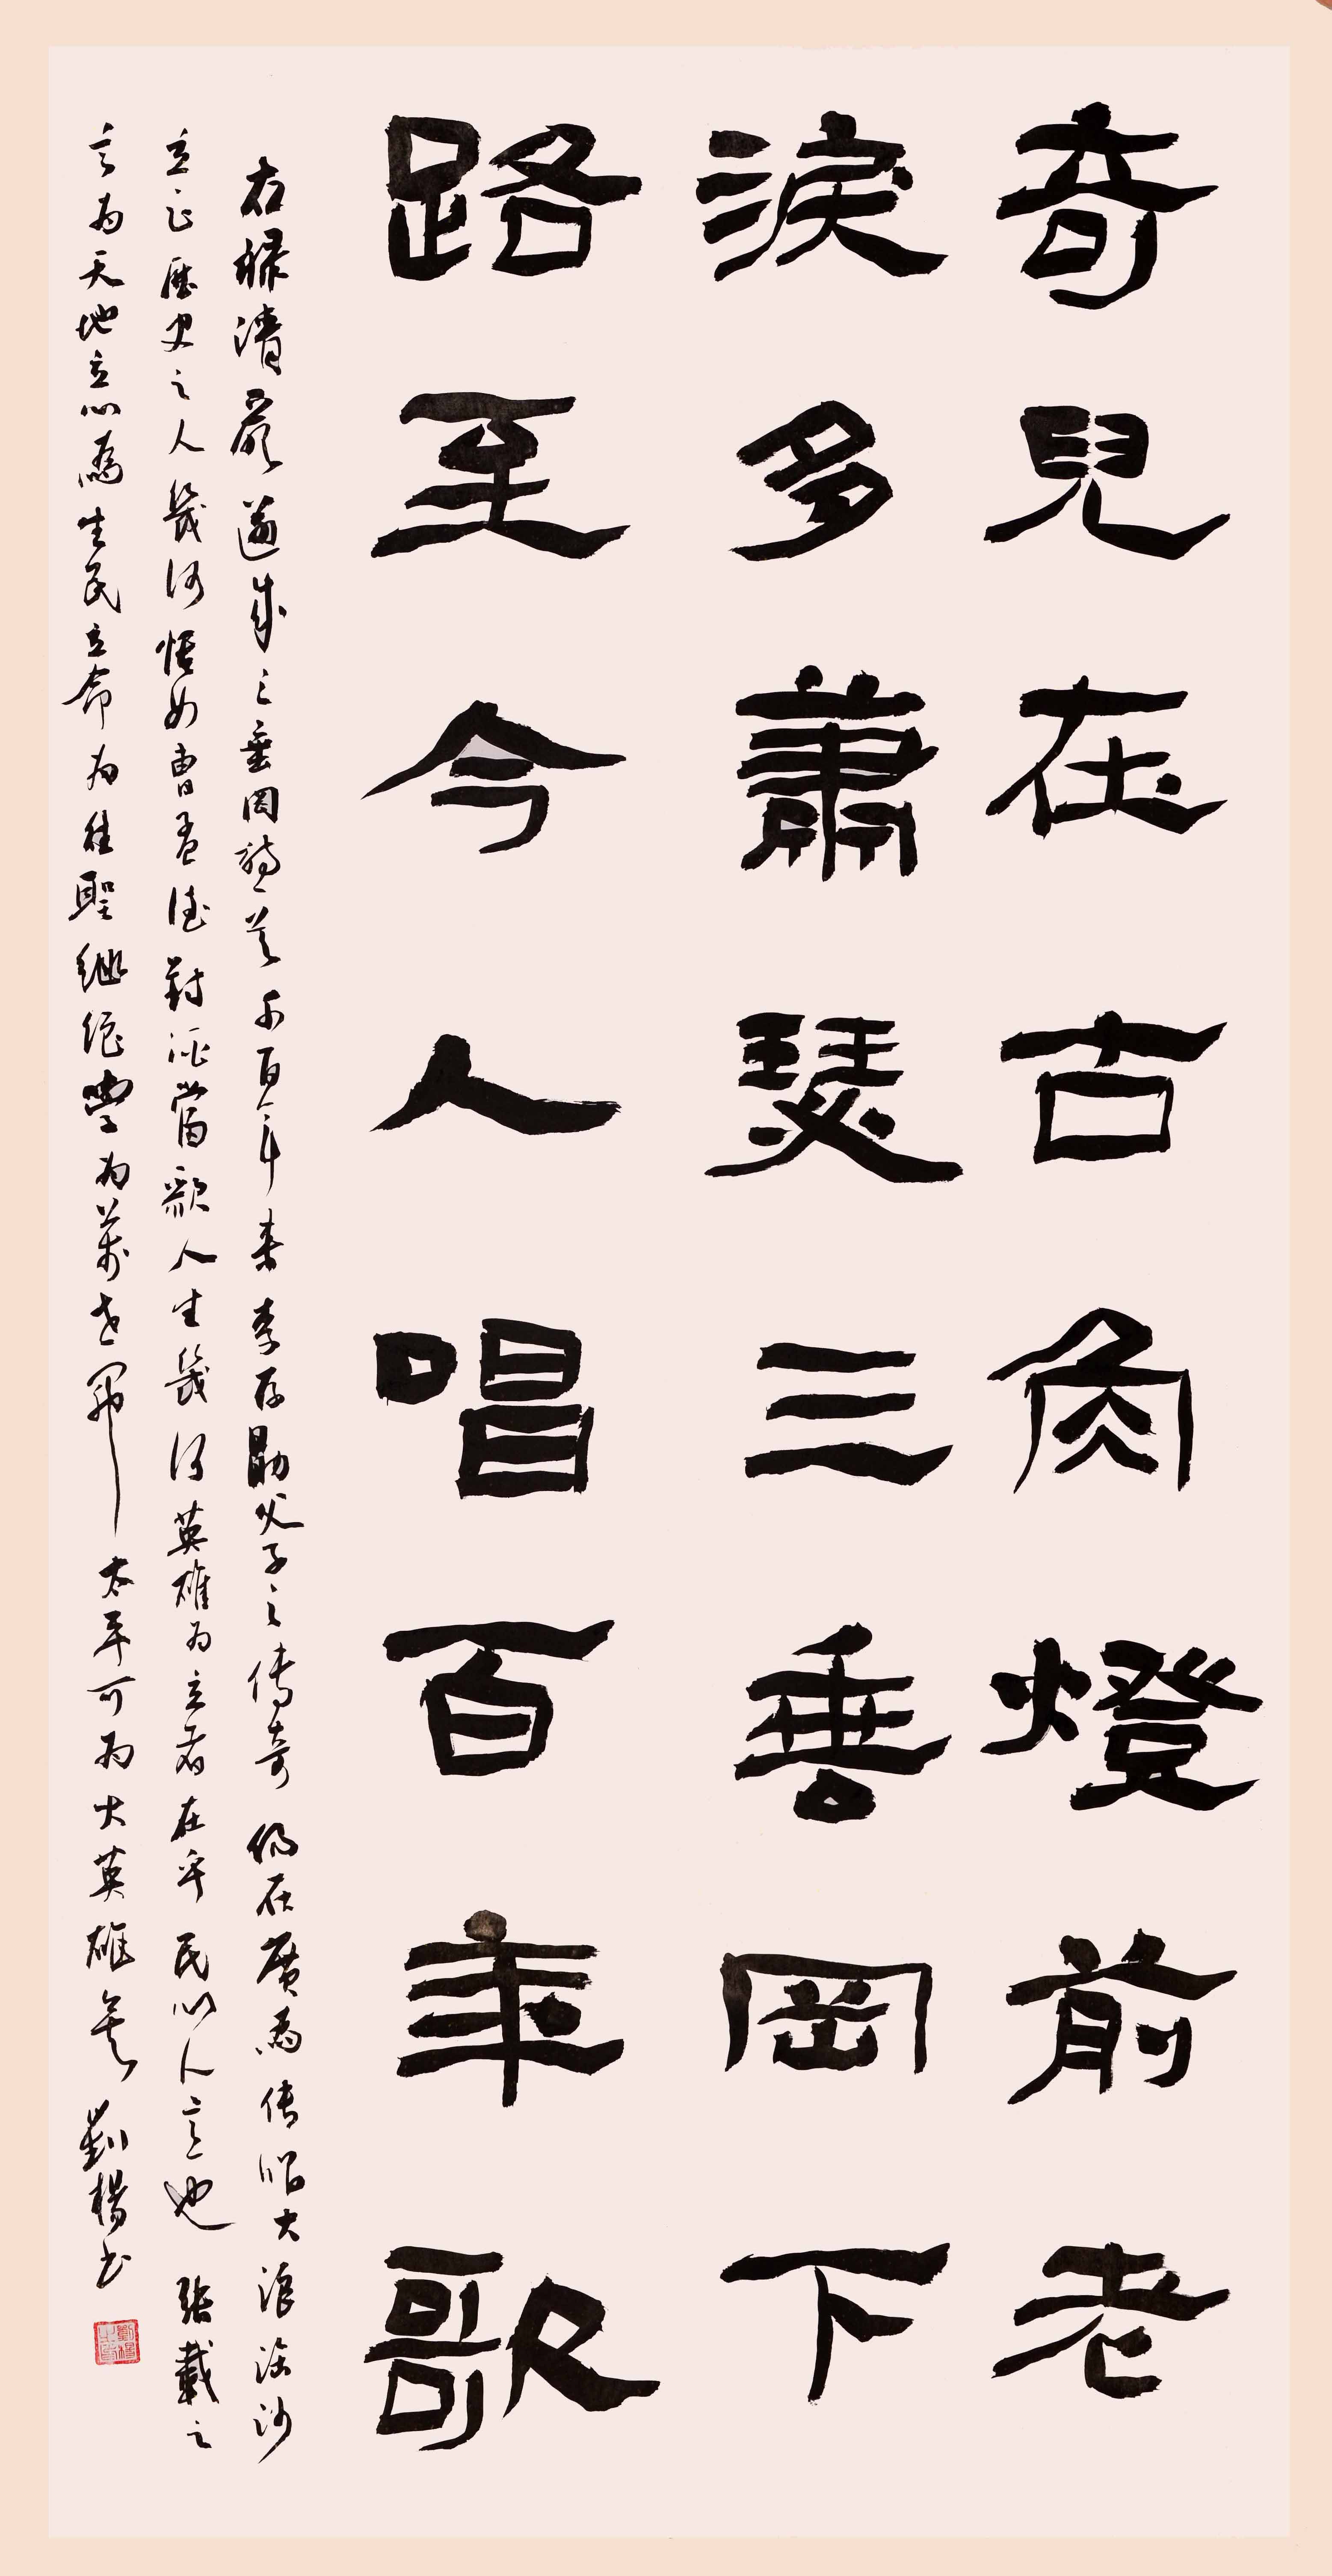 奇兒在古角燈前老
淚多蕭瑟三垂岡下
路至今人唱百年歌
右錄清嚴遂成三垂岡詩之千百年来李存勖父子之傳奇仍在廣為传唱大浪淘沙
立之歷史之人幾何惜如曹孟德對酒當歌人生幾何英雄为立者在乎民心人意也張載之
言为天地立心為生民立命为往聖继绝學为萬世開太平可为大英雄矣劉楊书